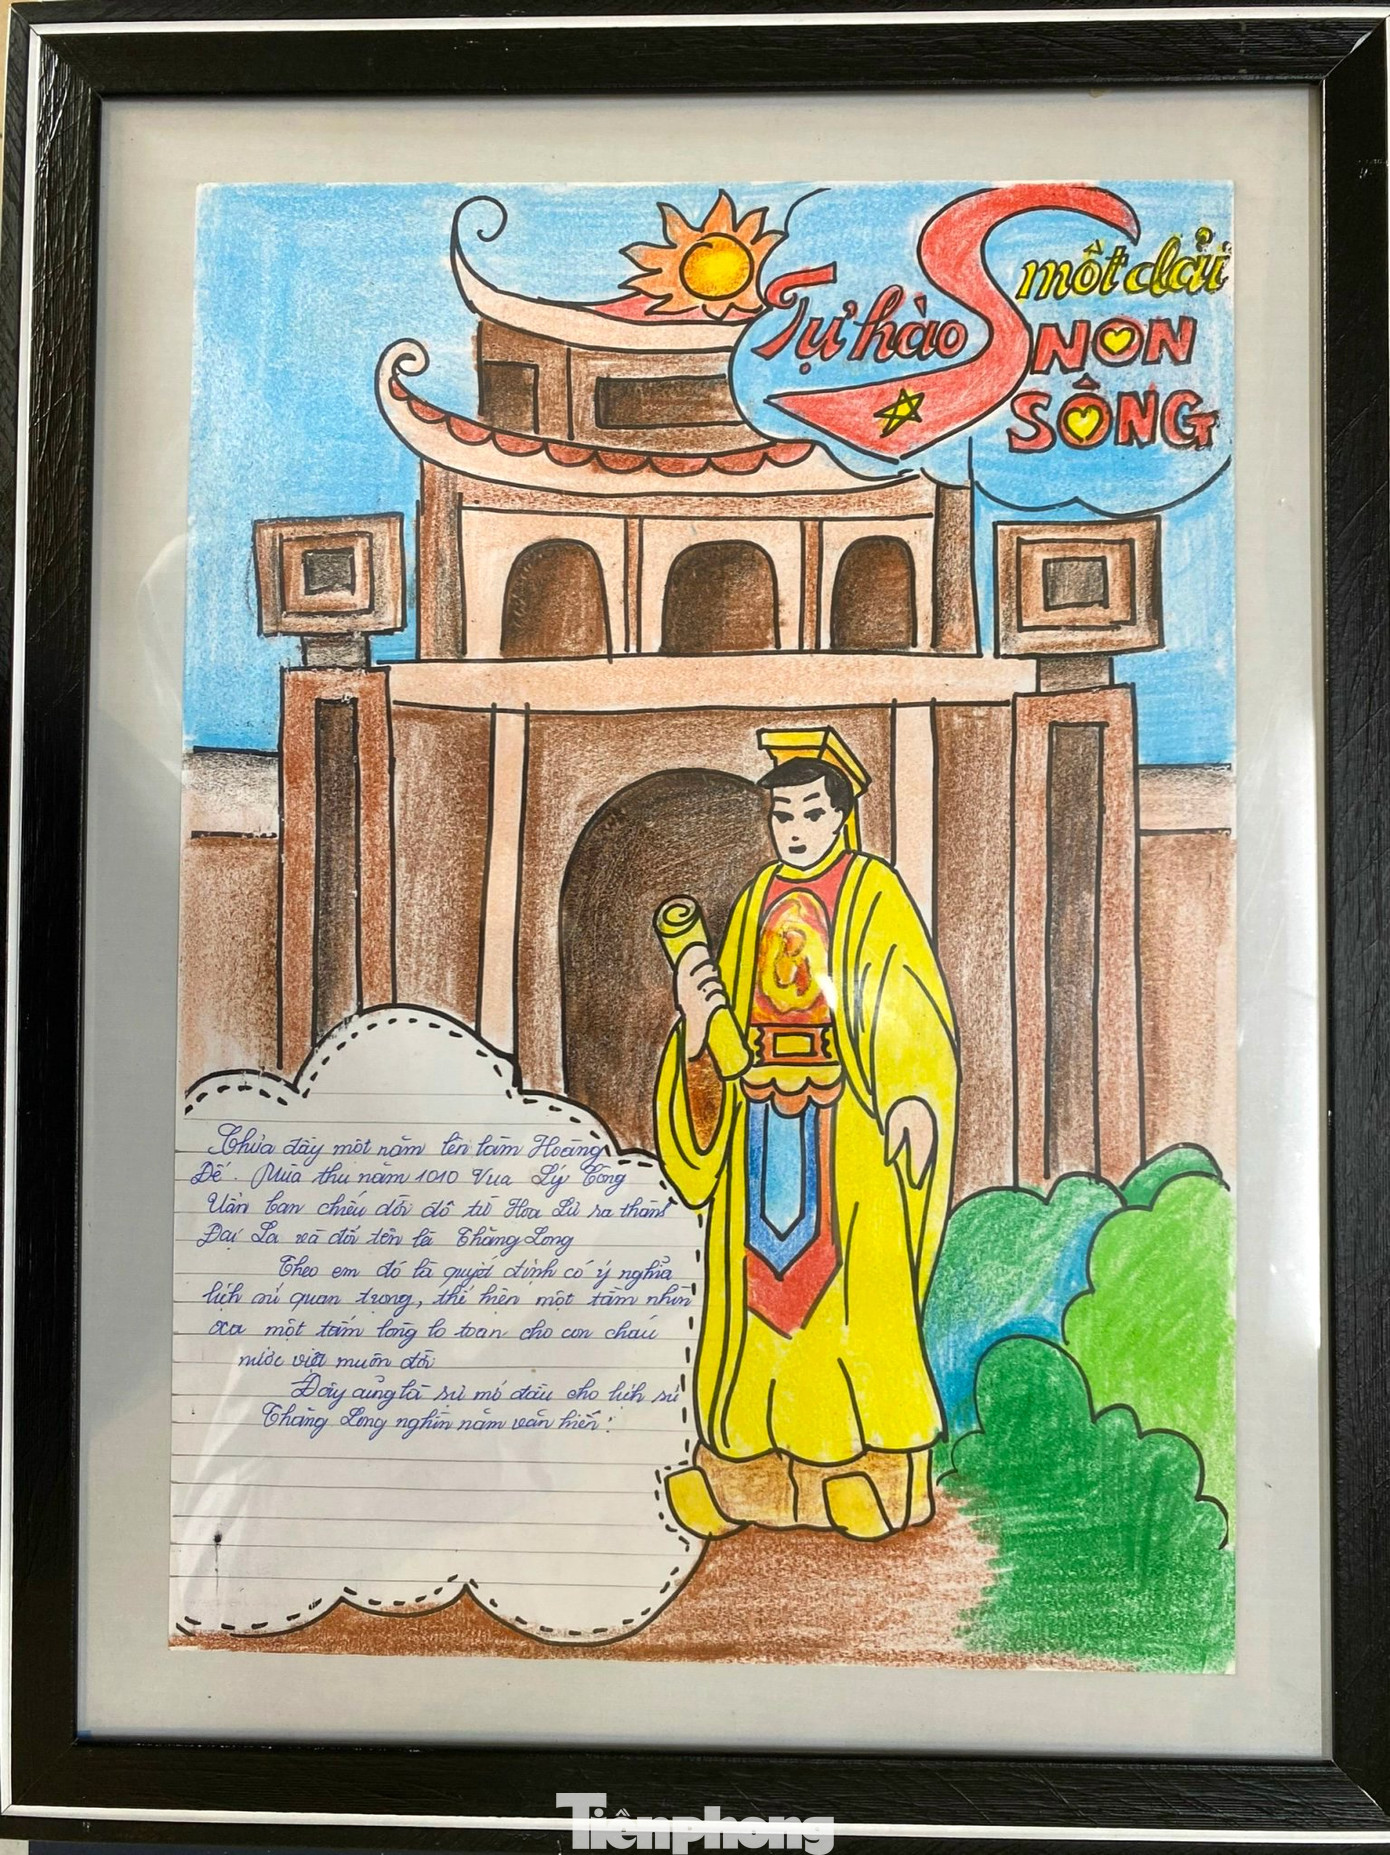 Tự hào
một dải
NON
SÔNG
Chưa đầy một năm lên làm Hoàng
Đế. Mùa thu năm 1010 Vua Lý Công
Uẩn ban chiếu dời đô từ Hoa Lư ra thành
Đại La và đổi tên là Thăng Long
Theo em đó là quyết định có ý nghĩa
lịch sử quan trọng, thể hiện một tầm nhìn
xa một tấm lòng lo toan cho con cháu
nước việt muôn đời
Đây cũng là sự mở đầu cho lịch sử
Thăng Long nghìn năm văn hiến!
Tiềnphong